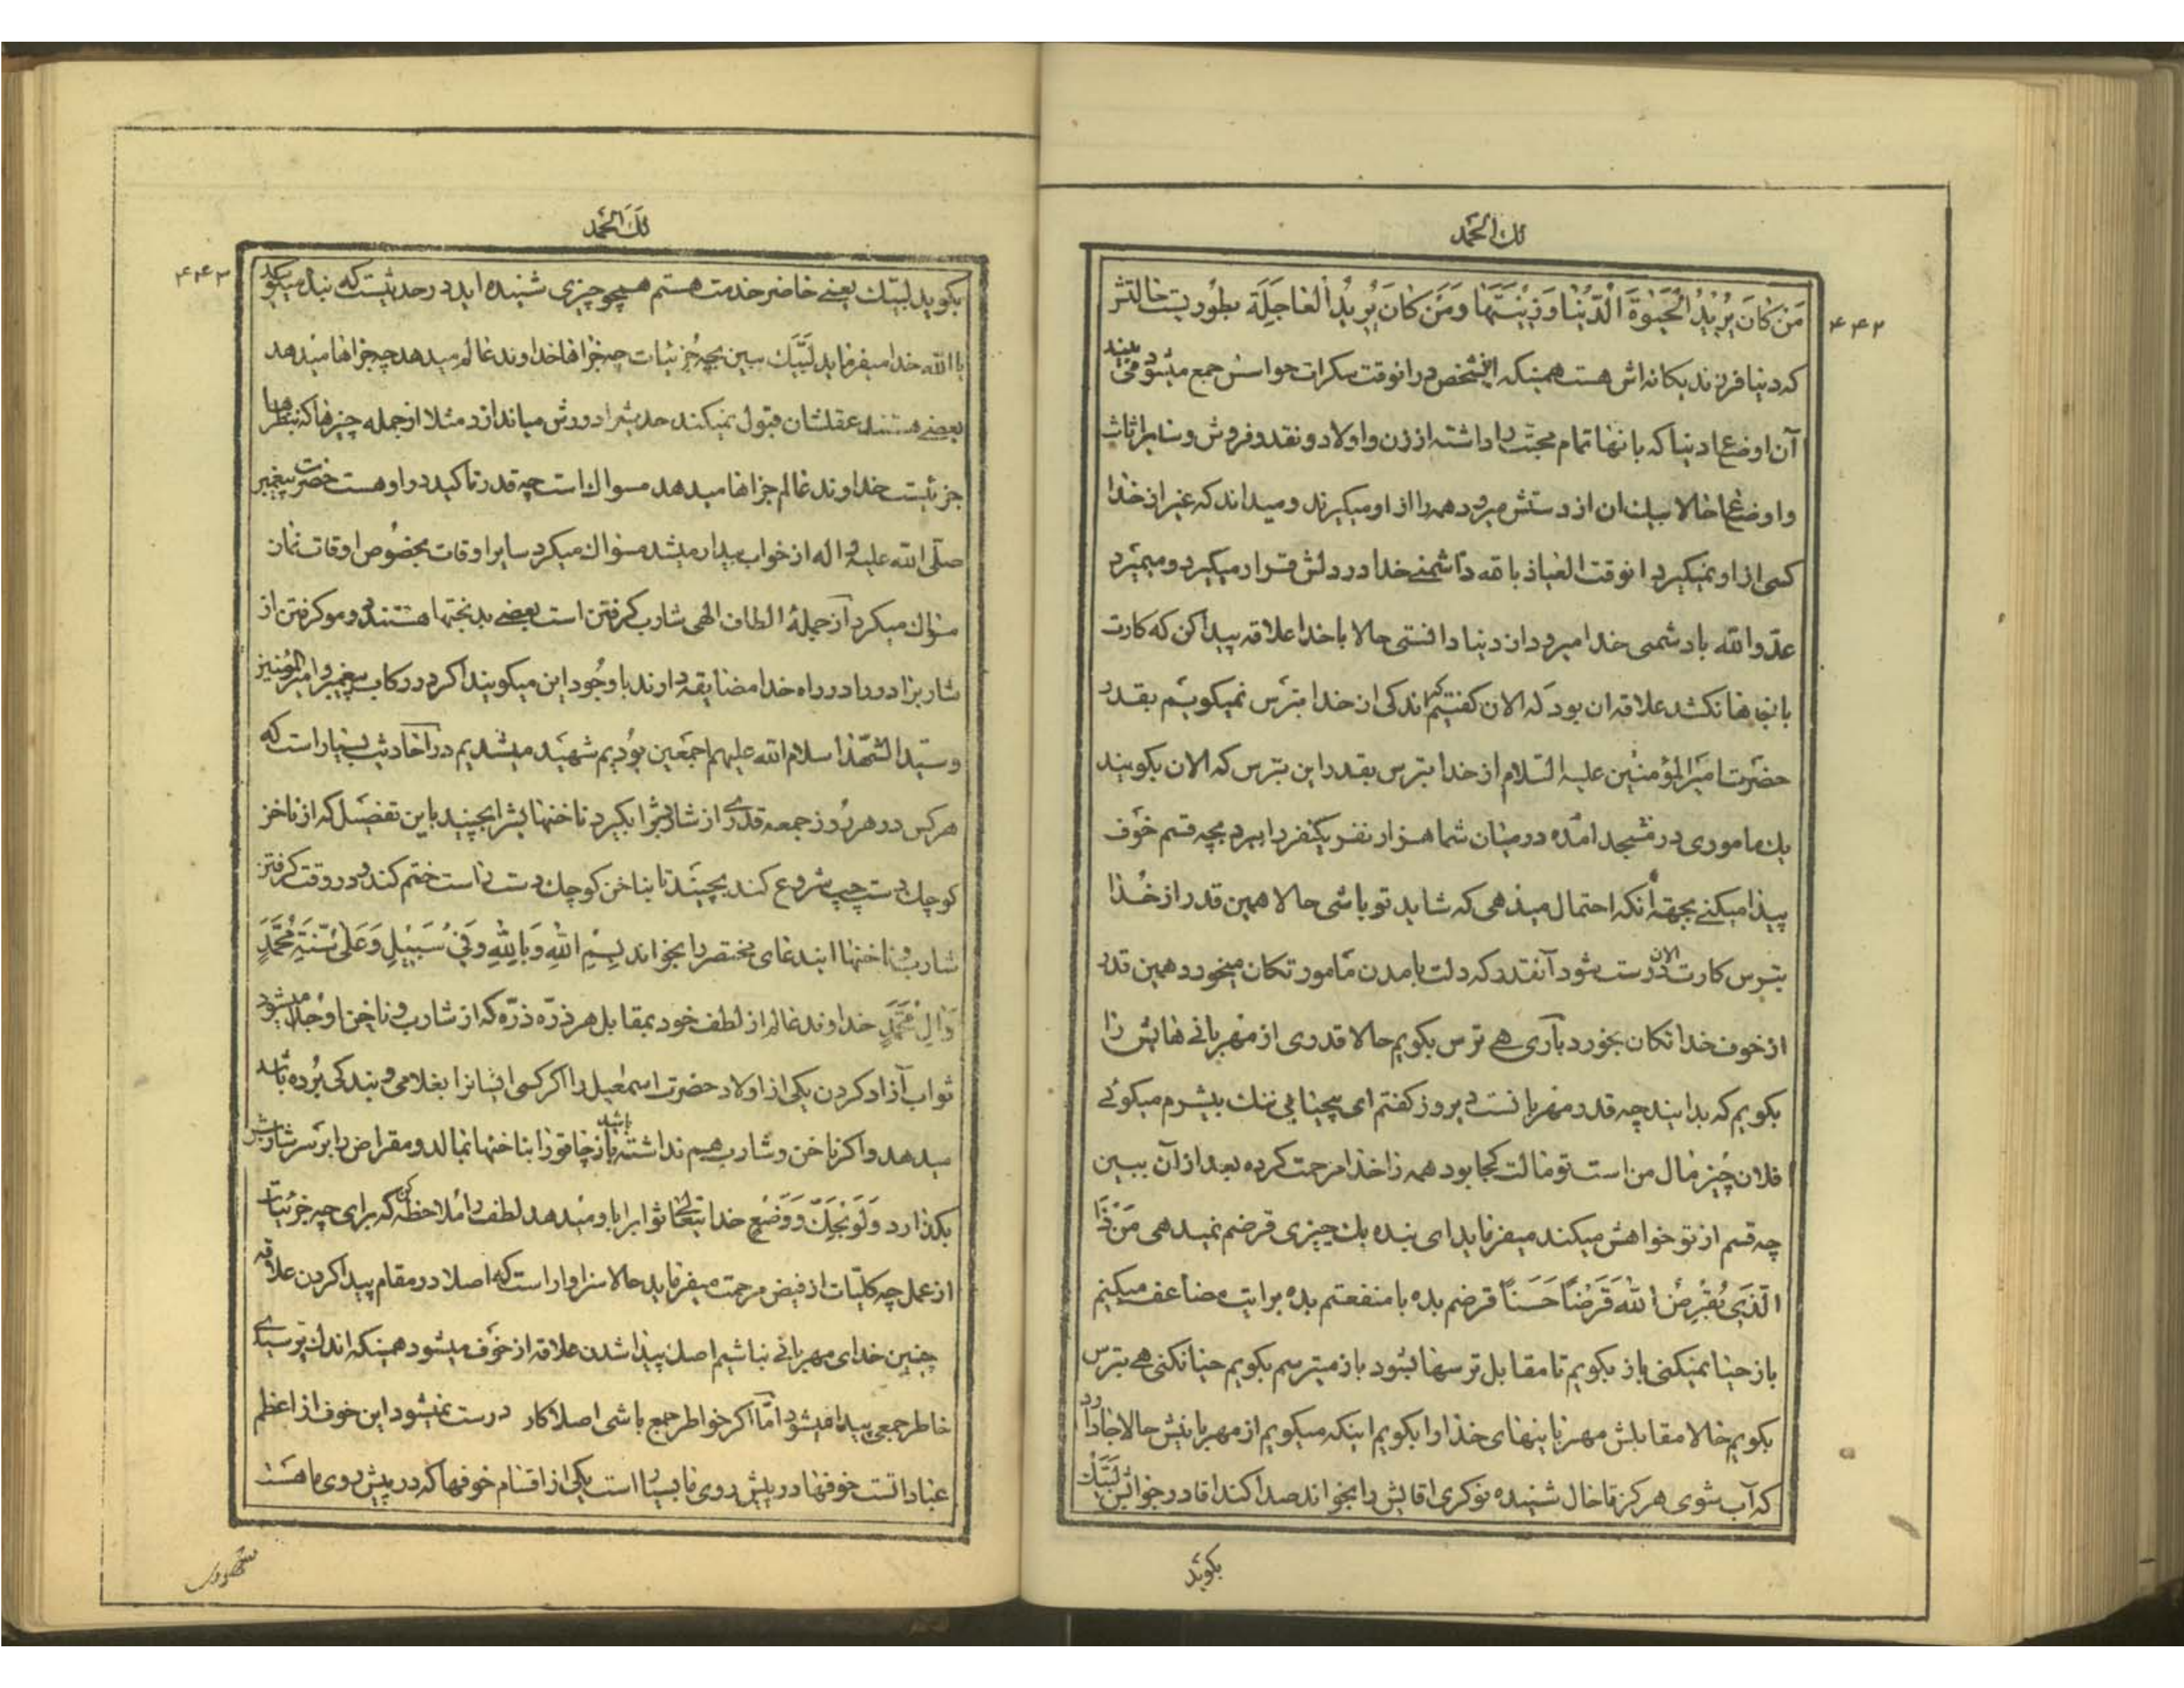 لك الحمد
۴۴۲
مَن كانَ يُريدُ الْحَيوةَ الدُّنيا وَ زينَتَها وَ مَن كانَ يُريدُ الْعاجِلَةَ بطوریست حالتش
که دنیا فرزند یکانه‌اش هست همینکه اینشخص در انوقت سکرات حواسش جمع میشود می بیند
آن اوضاع دنیا که بانها تمام محبت را داشته از زن و اولاد و نقد و فروش و سایر اثاث
و اوضاع حالا بیك ان از دستش میرود همه را از او میکیرند و میداند که غیر از خدا
کسی از او نمیکیرد انوقت العیاذ بالله دشمنی خدا در دلش قرار میکیرد و میمیرد
عدو الله با دشمنی خدا میرود از دنیا دانستی حالا با خدا علاقه پیدا کن که کارت
بانجاها نکشد علاقه ان بود که الان کفتیم که اندکی از خدا بترس نمیکویم بقدر
حضرت امیر المؤمنین علیه السلام از خدا بترس بقدر این بترس که الان بکویند
یك ماموری در مسجد امده در میان شما هزار نفر یکنفر را ببرد بچه قسم خوف
پیدا میکنی بجهة آنکه احتمال میدهی که شاید تو باشی حالا همین قدر از خدا
بترس کارت الان درست بشود آنقدر که دلت بامدن مامور تکان میخورد همین قدر
از خوف خدا تکان بخورد باری هی ترس بکویم حالا قدری از مهربانی هایش را
بکویم که بدانید چه قدر مهربانست دیروز کفتم ای بیحیای بی ننك بیشرم میکوئی
فلان چیز مال من است تو مالت کجا بود همه را خدا مرحمت کرده بعد از آن ببین
چه قسم از تو خواهش میکند میفرماید ای بنده یك چیزی قرضم نمیدهی مَنْ ذَا
الَّذی يُقْرِضُ اللهَ قَرْضاً حَسَناً قرضم بده با منفعتم بده برایت مضاعف میکنم
باز حیا نمیکنی باز بکویم تا مقابل ترسها بشود باز میترسم بکویم حیا نکنی هی بترس
بکویم حالا مقابلش مهربانیهای خدا را بکویم اینکه میکویم از مهربانیش حالا جا دارد
که آب شوی هرکز تا حال شنیده نوکری اقایش را بخواند صدا کند اقا در جوابش لبیك
بکوید
لك الحمد
۴۴۳
بکوید لبیك یعنی حاضر خدمت هستم هیچو چیزی شنیده اید در حدیثیست که بنده میکوید
یا الله خدا میفرماید لبیك ببین بچه جزئیات چه جزاها خداوند عالم میدهد چه جزاها میدهد
بعضی هستند عقلشان قبول نمیکند حدیث را دورش میاندازد مثلا از جمله چیزها که بنظرها
جزئیست خداوند عالم جزاها میدهد مسواك است چه قدر تاکید در او هست حضرت پیغمبر
صلی الله علیه و اله از خواب بیدار میشد مسواك میکرد سایر اوقات بخصوص اوقات نماز
مسواك میکرد از جمله الطاف الهی شارب کرفتن است بعضی بدبختها هستند دو مو کرفتن از
شارب را در راه خدا مضایقه دارند با وجود این میکویند اکر در رکاب پیغمبر و امیر المؤمنین
و سید الشهدا سلام الله علیهم اجمعین بودیم شهید میشدیم در احادیث بسیار است که
هرکس در هر روز جمعه قدری از شاربش را بکیرد ناخنهایش را بچیند باین تفصیل که از ناخن
کوچك دست چپ شروع کند بچیند تا بناخن کوچك دست راست ختم کند و در وقت کرفتن
شارب و ناخنها ایندعای مختصر را بخواند بِسْمِ اللهِ وَ بِاللهِ وَ فی سَبیلِ وَ عَلی سُنَّةِ مُحَمَّدٍ
وَ الِ مُحَمَّدٍ خداوند عالم از لطف خود بمقابل هر ذره ذره که از شارب و ناخن او جدا میشود
ثواب آزاد کردن یکی از اولاد حضرت اسمعیل را اکر کسی ایشانرا بغلامی و بندکی برده باشد
میدهد و اکر ناخن و شارب هیم نداشته باشد باز چاقو را بناخنها بمالد و مقراض را بر سر شاربش
بکذارد وَ لَو بَحَكٍّ وَ وَضْعٍ خدایتعالی ثوابرا باو میدهد لطف را ملاحظه کن که برای چه جزئیات
از عمل چه کلیات از فیض مرحمت میفرماید حالا سزاوار است که اصلا در مقام پیدا کردن علاقه
چنین خدای مهربانی نباشیم اصل پیدا شدن علاقه از خوف میشود همینکه اندك ترسیدی
خاطر جمعی پیدا میشود امّا اکر خواطر جمع باشی اصلا کار درست نمیشود این خوف از اعظم
عباداتست خوفها در پیش روی ما بسیار است یکی از اقسام خوفها که در پیش روی ما هست